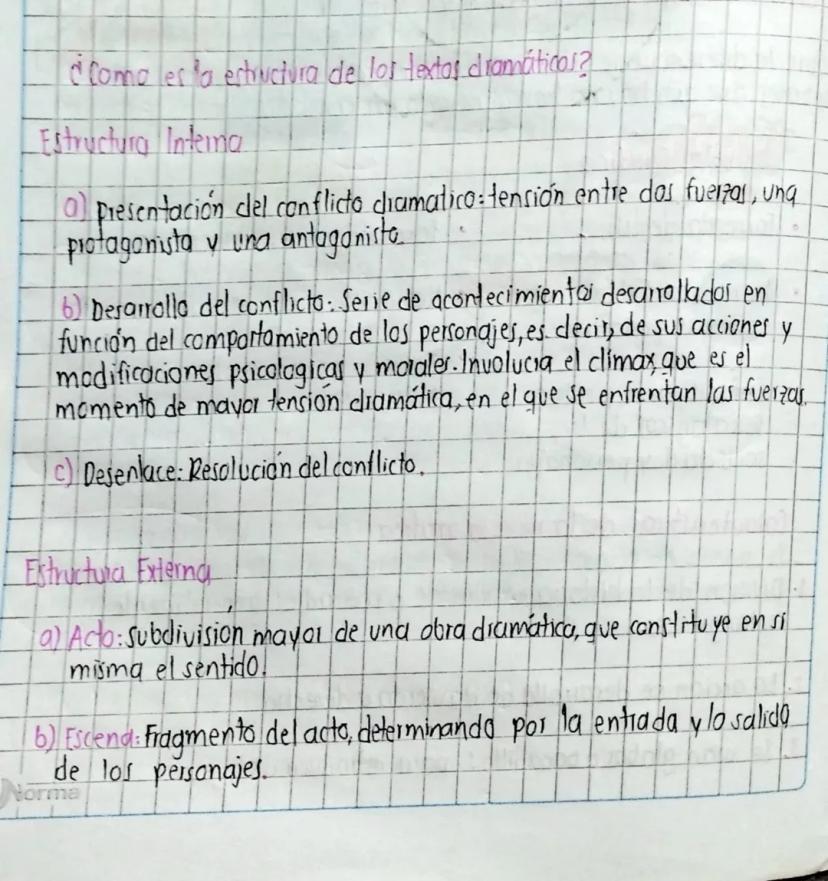 ¿Como es la estructura de los textos dramáticos?
Estructura Interna
a) presentación del conflicto dramatico: tensión entre dos fuerzas, una
protagonista y una antagonista.
b) Desarrollo del conflicto: Serie de acontecimientos desarrollados en
función del comportamiento de los personajes, es decir, de sus acciones y
modificaciones psicologicas y morales. Involucra el climax, que es el
momento de mayor tensión dramática, en el que se enfrentan las fuerzas.
c) Desenlace: Resolución del conflicto.
Estructura Externa
a) Acto: subdivisión mayor de una obra dramática, que constituye en si
misma el sentido.
b) Escena: Fragmento del acto, determinando por la entrada y lo salida
de los personajes.
Norma